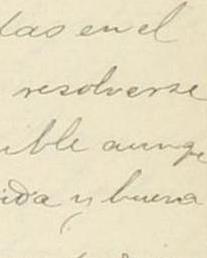 das en el
resolverse
ible aunqe
ida y buena